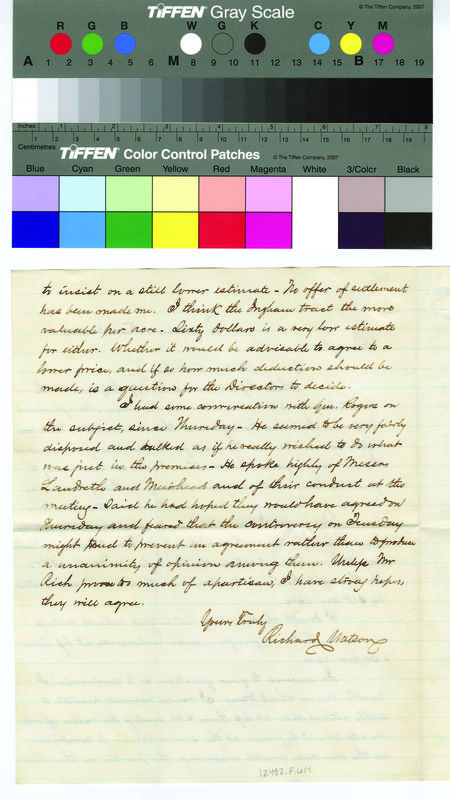 TIFFEN® Gray Scale
© The Tiffen Company, 2007
R G B W G K C Y M
A 1 2 3 4 5 6 M 8 9 10 11 12 13 14 15 B 17 18 19
Inches 1 2 3 4 5 6 7 8
Centimetres
TIFFEN® Color Control Patches
© The Tiffen Company, 2007
Blue Cyan Green Yellow Red Magenta White 3/Color Black
to insist on a still lower estimate - No offer of settlement
has been made me. I think the Ingham tract the more
valuable per acre - Sixty Dollars is a very low estimate
for either. Whether it would be advisable to agree to a
lower price, and if so how much deduction should be
made, is a question for the Directors to decide.
I had some conversation with Gen. Rogers on
the subject, since Thursday - He seemed to be very fairly
disposed and talked as if he really wished to do what
was just in the premises - He spoke highly of Messrs
Landreth and Muirhead and of their conduct at the
meeting - Said he had hoped they would have agreed on
Thursday and feared that the controversy on Tuesday
might tend to prevent an agreement rather than to produce
a unanimity of opinion among them. Unless Mr
Rich proves too much of a partisan, I have strong hopes
they will agree.
Yours Truly
Richard Watson
12482.F.614